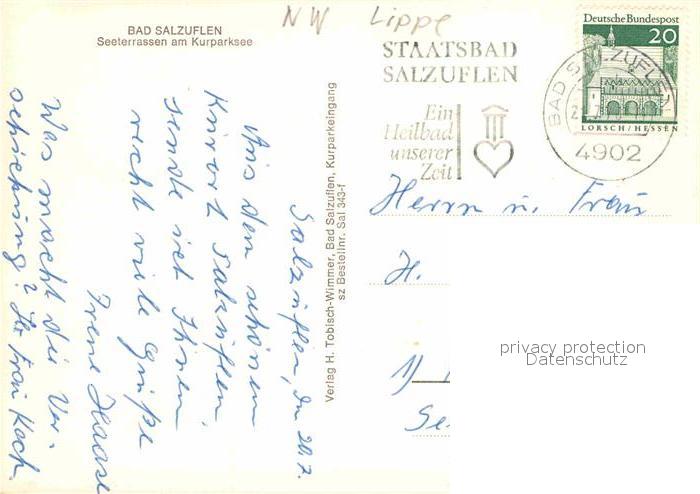 BAD SALZUFLEN
Seeterrassen am Kurparksee
NW Lippe
STAATSBAD
SALZUFLEN
Ein
Heilbad
unserer
Zeit
Deutsche Bundespost
20
LORSCH/HESSEN
BAD SALZUFLEN
4902
Verlag H. Tobisch-Wimmer, Bad Salzuflen, Kurparkeingang
sz Bestellnr. Sal 343-f
Salzuflen, den 20.7.
Aus dem schönen
Kurort Salzuflen
sende ich Ihnen
recht viele Grüße
Irene Haase
Was macht die Ver-
schickung? Ihr Frau Koch.
Herrn u. Frau
H.
Se
privacy protection
Datenschutz